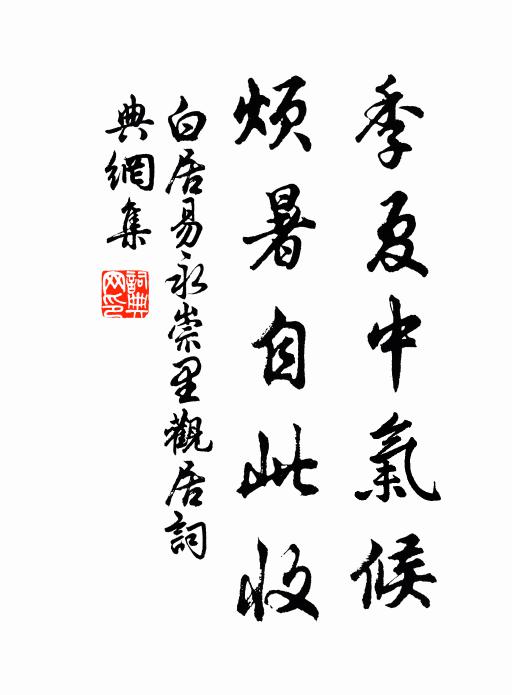 季夏中氣候
煩暑自此收
白居易永崇里觀居詞
典網集
詞典網印